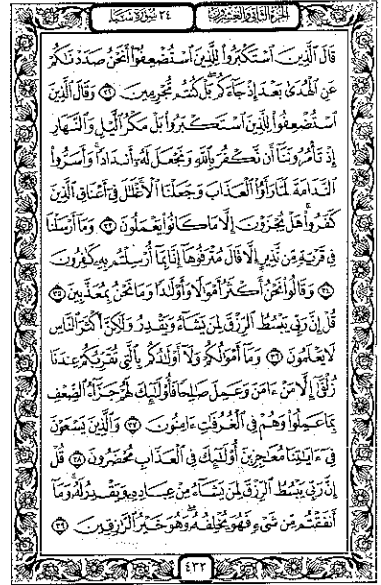 الجزء الثاني والعشرون ٣٤ سورة سبأ
قَالَ الَّذِينَ اسْتَكْبَرُوا لِلَّذِينَ اسْتُضْعِفُوا أَنَحْنُ صَدَدْنَاكُمْ
عَنِ الْهُدَىٰ بَعْدَ إِذْ جَاءَكُم بَلْ كُنتُم مُّجْرِمِينَ ٣٢ وَقَالَ الَّذِينَ
اسْتُضْعِفُوا لِلَّذِينَ اسْتَكْبَرُوا بَلْ مَكْرُ اللَّيْلِ وَالنَّهَارِ
إِذْ تَأْمُرُونَنَا أَن نَّكْفُرَ بِاللَّهِ وَنَجْعَلَ لَهُ أَندَادًا وَأَسَرُّوا
النَّدَامَةَ لَمَّا رَأَوُا الْعَذَابَ وَجَعَلْنَا الْأَغْلَالَ فِي أَعْنَاقِ الَّذِينَ
كَفَرُوا هَلْ يُجْزَوْنَ إِلَّا مَا كَانُوا يَعْمَلُونَ ٣٣ وَمَا أَرْسَلْنَا
فِي قَرْيَةٍ مِّن نَّذِيرٍ إِلَّا قَالَ مُتْرَفُوهَا إِنَّا بِمَا أُرْسِلْتُم بِهِ كَافِرُونَ
٣٤ وَقَالُوا نَحْنُ أَكْثَرُ أَمْوَالًا وَأَوْلَادًا وَمَا نَحْنُ بِمُعَذَّبِينَ ٣٥
قُلْ إِنَّ رَبِّي يَبْسُطُ الرِّزْقَ لِمَن يَشَاءُ وَيَقْدِرُ وَلَٰكِنَّ أَكْثَرَ النَّاسِ
لَا يَعْلَمُونَ ٣٦ وَمَا أَمْوَالُكُمْ وَلَا أَوْلَادُكُم بِالَّتِي تُقَرِّبُكُمْ عِندَنَا
زُلْفَىٰ إِلَّا مَنْ ءَامَنَ وَعَمِلَ صَالِحًا فَأُولَٰئِكَ لَهُمْ جَزَاءُ الضِّعْفِ
بِمَا عَمِلُوا وَهُمْ فِي الْغُرُفَاتِ ءَامِنُونَ ٣٧ وَالَّذِينَ يَسْعَوْنَ
فِي ءَايَاتِنَا مُعَاجِزِينَ أُولَٰئِكَ فِي الْعَذَابِ مُحْضَرُونَ ٣٨ قُلْ
إِنَّ رَبِّي يَبْسُطُ الرِّزْقَ لِمَن يَشَاءُ مِنْ عِبَادِهِ وَيَقْدِرُ لَهُ وَمَا
أَنفَقْتُم مِّن شَيْءٍ فَهُوَ يُخْلِفُهُ وَهُوَ خَيْرُ الرَّازِقِينَ ٣٩
٤٣٢